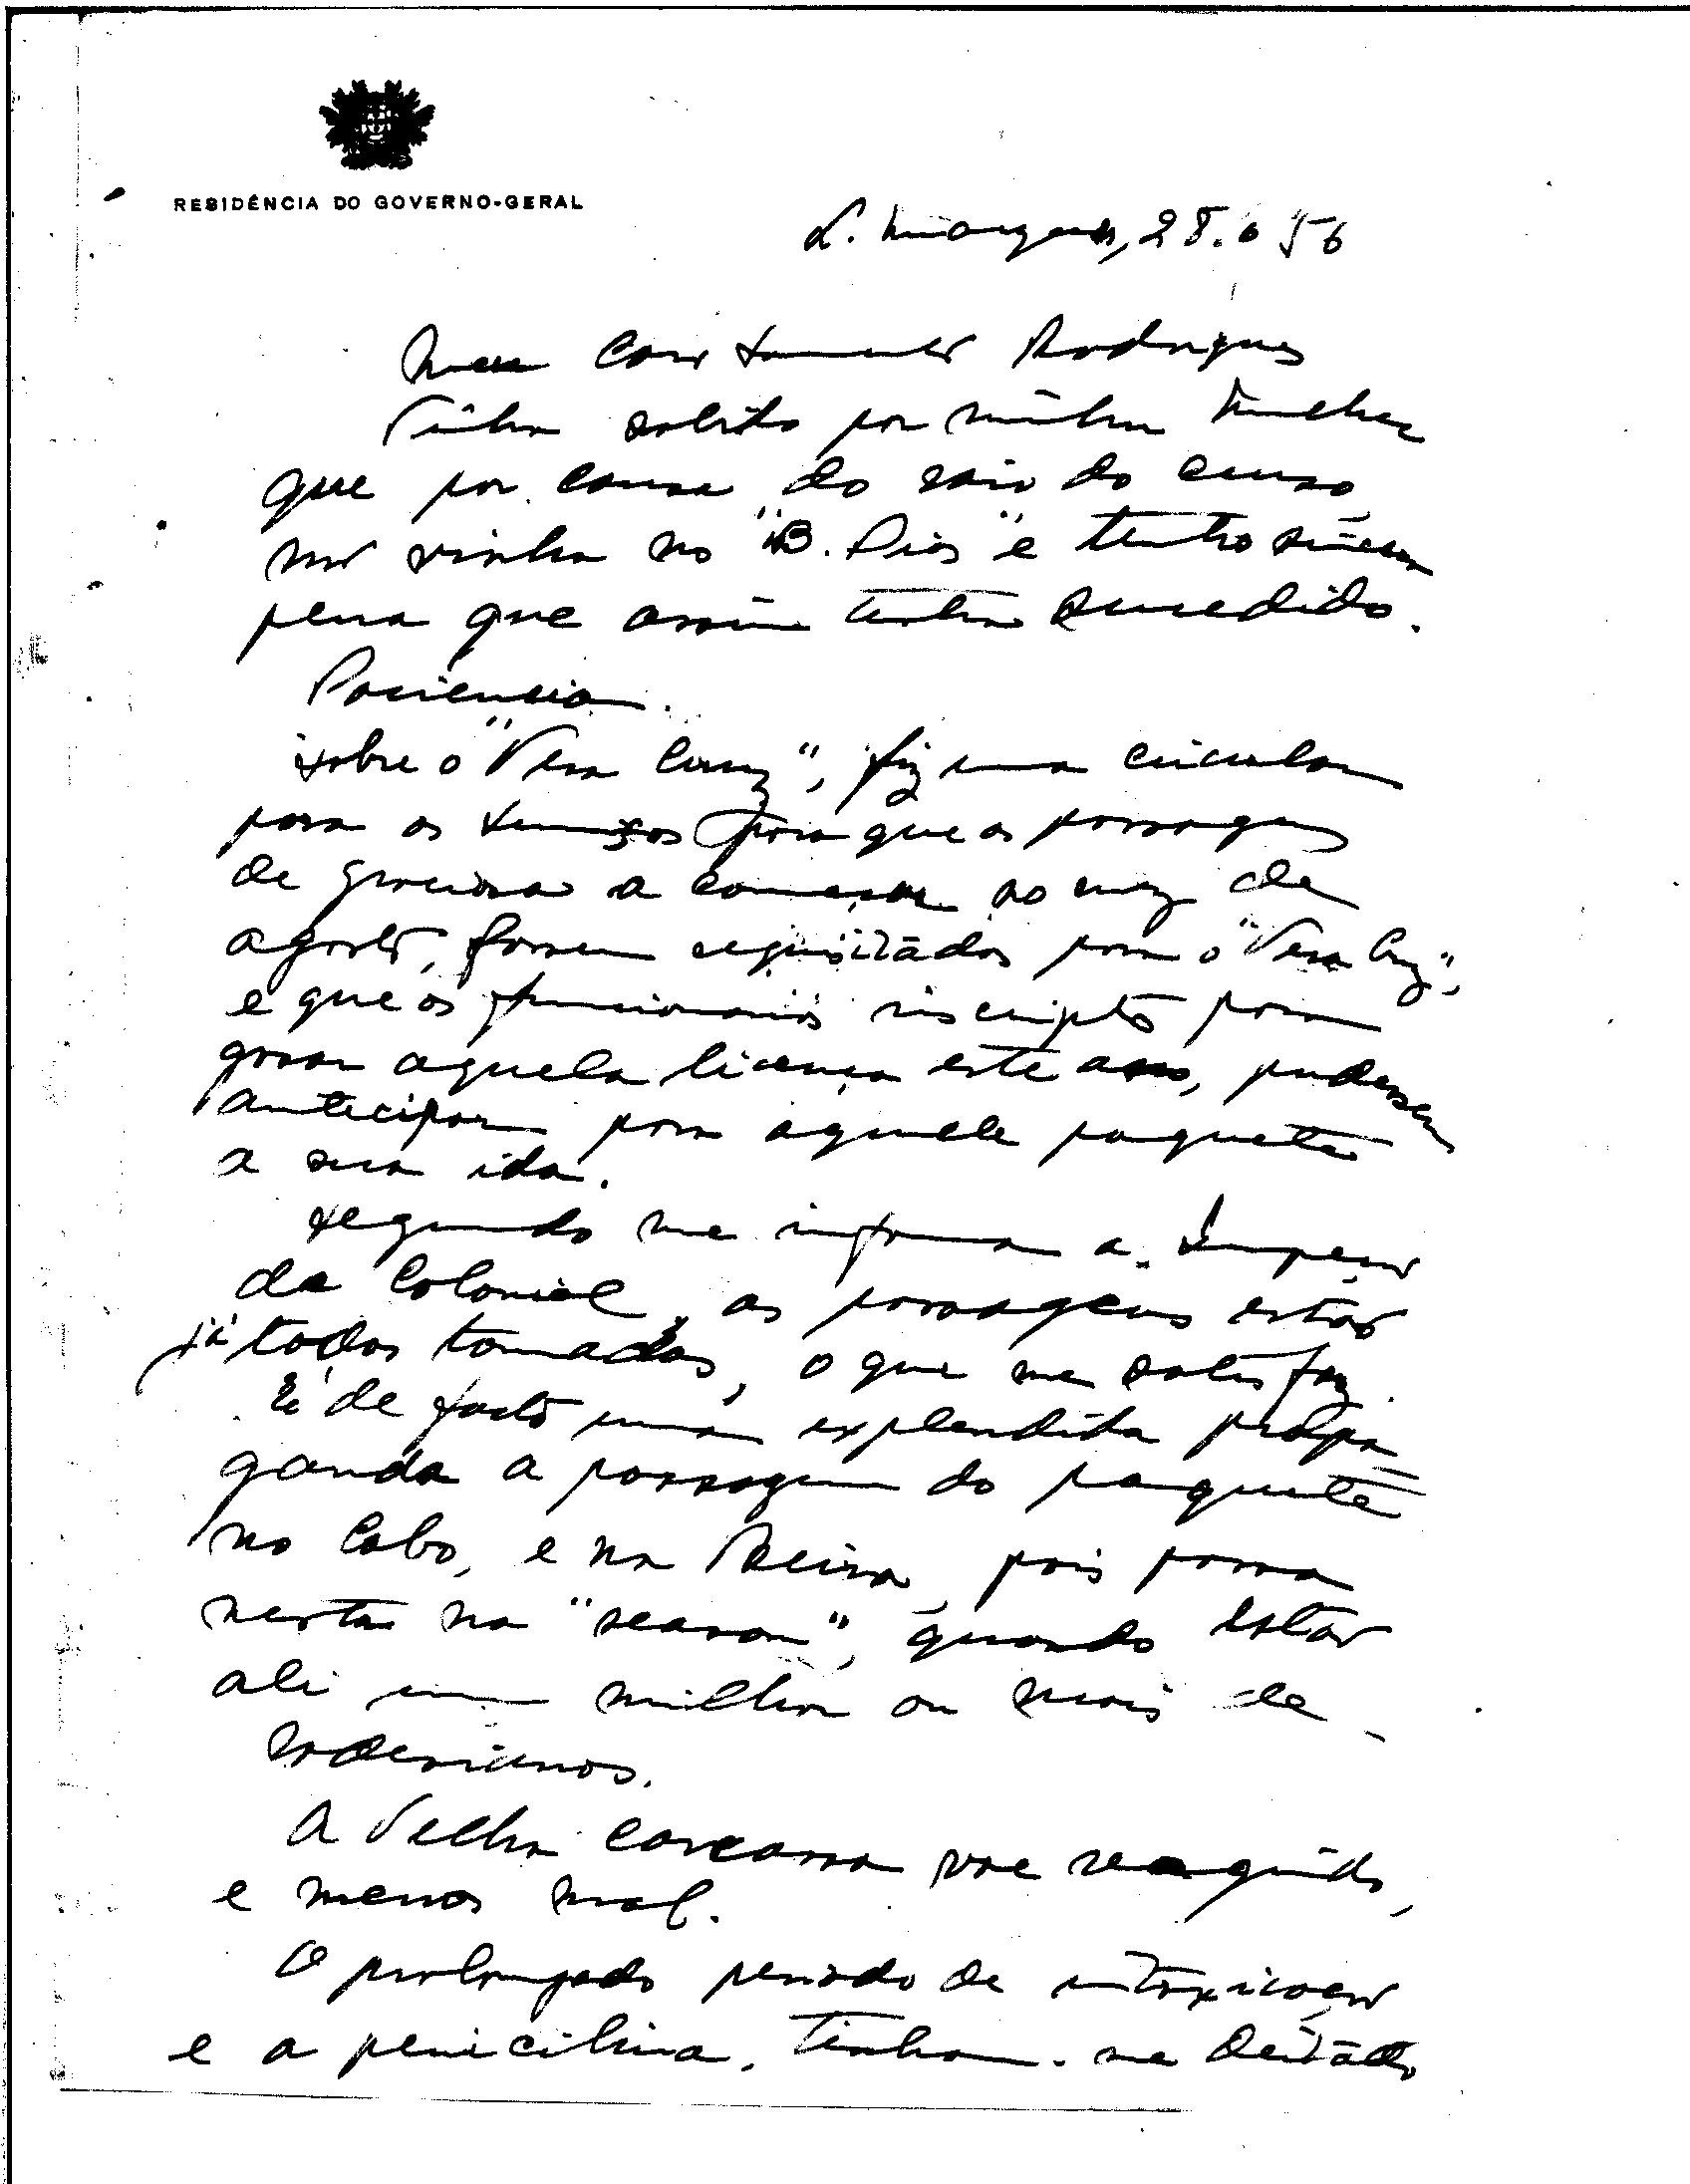 RESIDÊNCIA DO GOVERNO-GERAL
L. Marques, 28.6 56
Meu Caro Sarmento Rodrigues
Tinha sabido por minha mulher
que por causa do raio do curso
não vinha no "B. Dias" e tenho sincera
pena que assim tenha sucedido.
Paciencia.
Sobre o "Vera Cruz", fiz uma circular
para os serviços para que as passagens
de graciosa a começar no mez de
agosto, fossem requisitadas para o "Vera Cruz",
e que os funcionarios inscriptos para
gosar aquela licença este ano, pudessem
antecipar para aquele paquete
a sua ida.
Segundo me informa a Inspecção
da Colonial, as passagens estão
já todas tomadas, o que me satisfaz.
É de facto uma explendida propa
ganda a passagem do paquete
no Cabo, e na Beira, pois passa
nesta na "season", quando estão
ali um milhar ou mais de
rodesianos.
A velha carcassa vae reagindo,
e menos mal.
O prolongado periodo de intoxicação
e a penicilina, tinham-me deitado